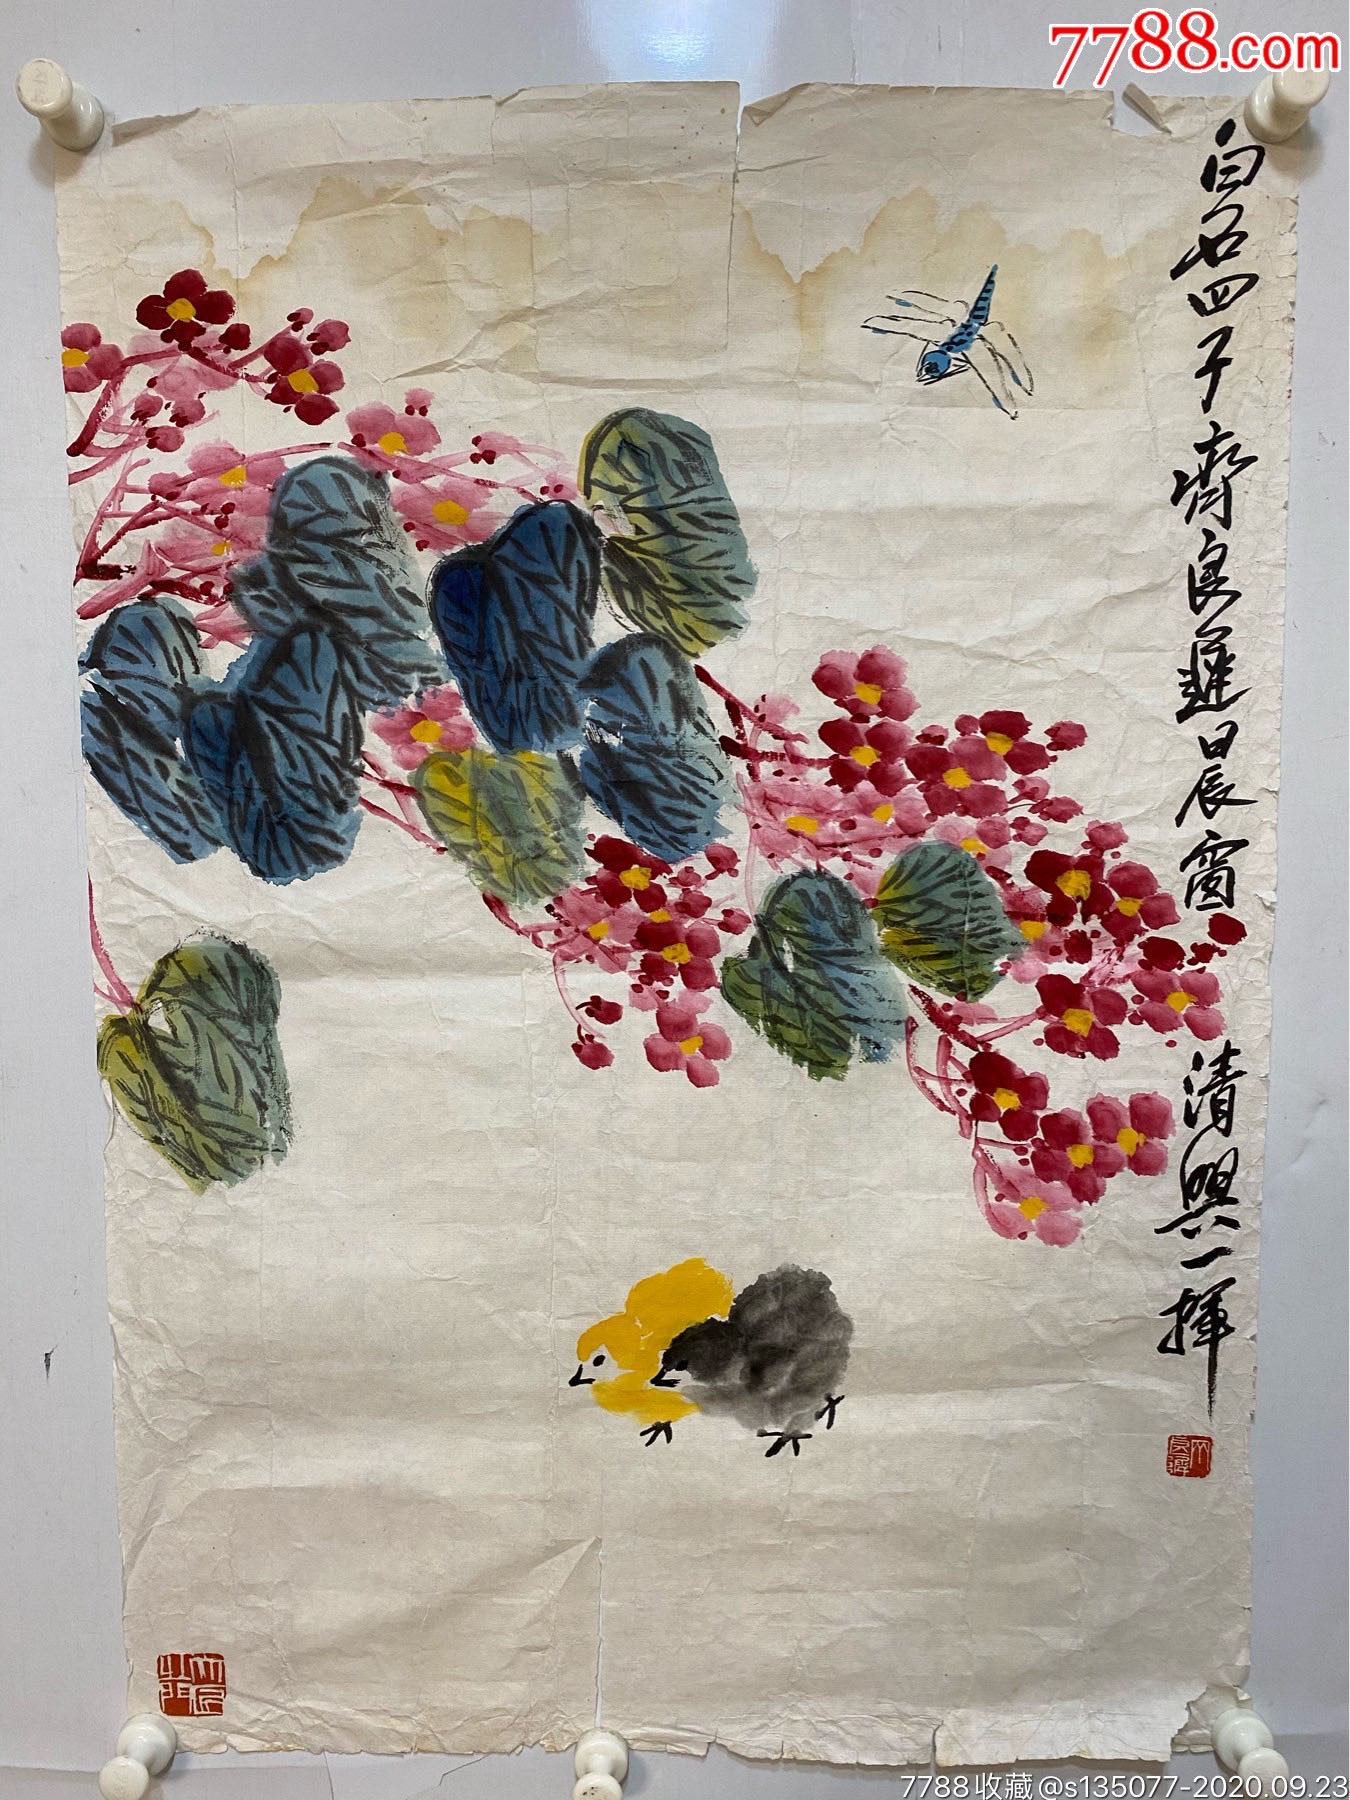 7788.com
白石四子齊良遲日晨窗清興一揮
7788收藏@s135077-2020.09.23